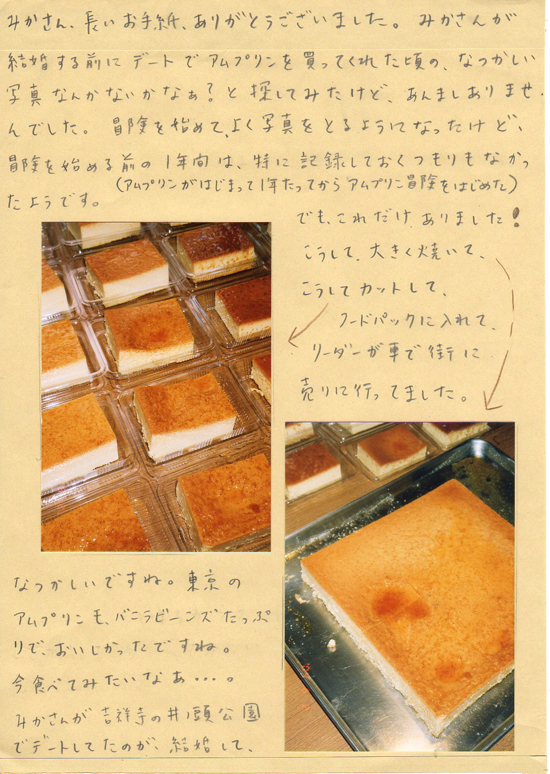 みかさん、長いお手紙、ありがとうございました。 みかさんが
結婚する前に デートで アムプリンを 買ってくれた頃の、なつかしい
写真 なんかないかなぁ？と 探してみたけど、あんましありませ
んでした。 冒険を始めて、よく写真をとるようになったけど、
冒険を始める前の 1年間は、特に 記録しておくつもりもなかっ
(アムプリンがはじまって1年たってから アムプリン冒険をはじめた)
たようです。
でも、これだけ ありました！
こうして、大きく焼いて、
こうして カットして、
フードパックに入れて、
リーダーが車で 街に
売りに行ってました。
なつかしいですね。東京の
アムプリンも、バニラビーンズたっぷ
りで、おいしかったですね。
今食べてみたいなぁ・・・。
みかさんが 吉祥寺の井の頭公園
でデートしてたのが、結婚して、